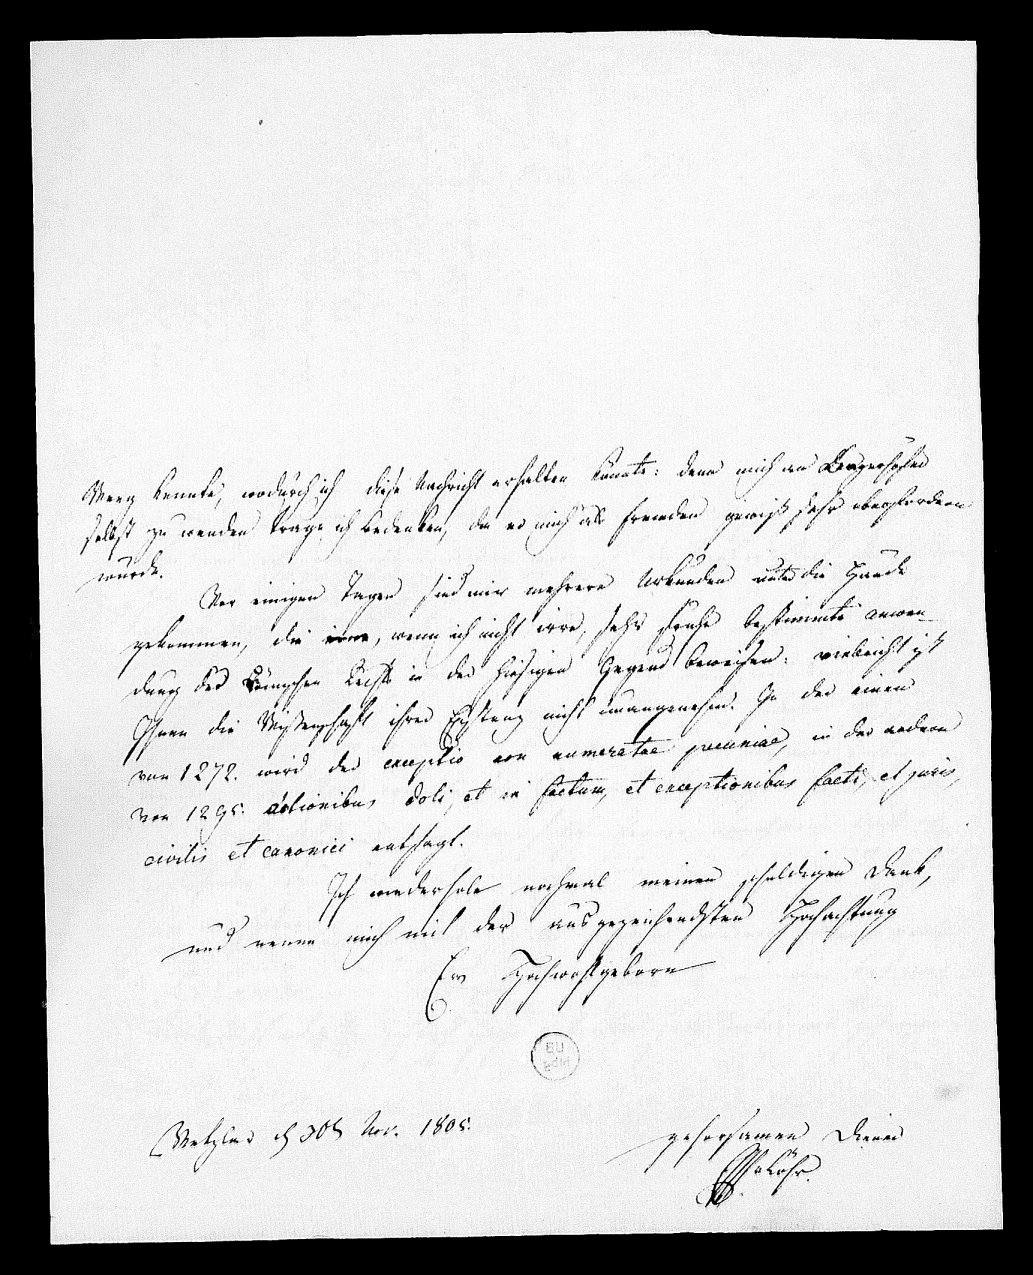 Weeg kennte, wodurch ich diese Nachricht erhalten könnte: denn mich an
selbst zu wenden trage ich Bedenken, da er mich als Fremden gewiß sehr überfordern
würde.
Vor einigen Tagen sind mir mehrere Urkunden unter die Hände
gekommen, die, wenn ich nicht irre, sehr frühe bestimmte anwen-
dung des Römischen Rechts in der hiesigen Gegend beweisen: vielleicht ist
Ihnen die Wissenschaft ihrer Existenz nicht unangenehm. In der einen
von 1272. wird der exceptio non numeratae pecuniae, in der andern
von 1295. actionibus doli, et in factum, et exceptionibus facti, et juris,
civilis et canonici entsagt.
Ich wiederhole nochmal meinen schuldigen Dank,
und nenne mich mit der ausgezeichnetsten Hochachtung
Ew Hochwohlgeborn
UB
Wetzlar d 30t Nov. 1805.
gehorsamen Diener
vLöhr.